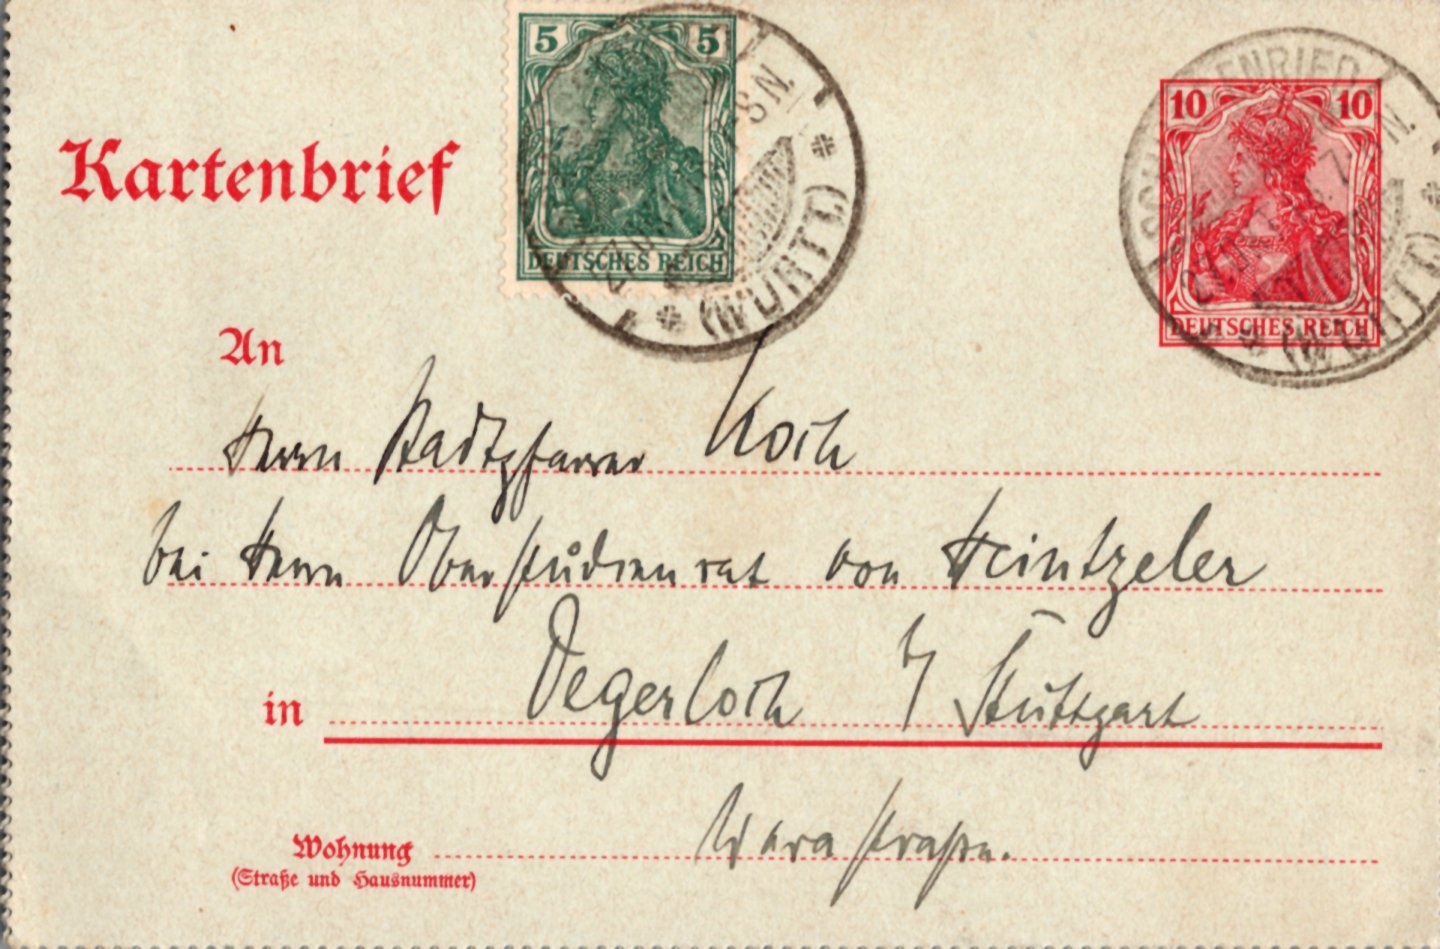 5 5
DEUTSCHES REICH
(WÜRTT.)
10 10
DEUTSCHES REICH
(WÜRTT.)
Kartenbrief
An
Herrn Stadtpfarrer Koch
bei Herrn Oberstudienrat von Heintzeler
in Degerloch b/ Stuttgart
Wohnung
(Straße und Hausnummer)